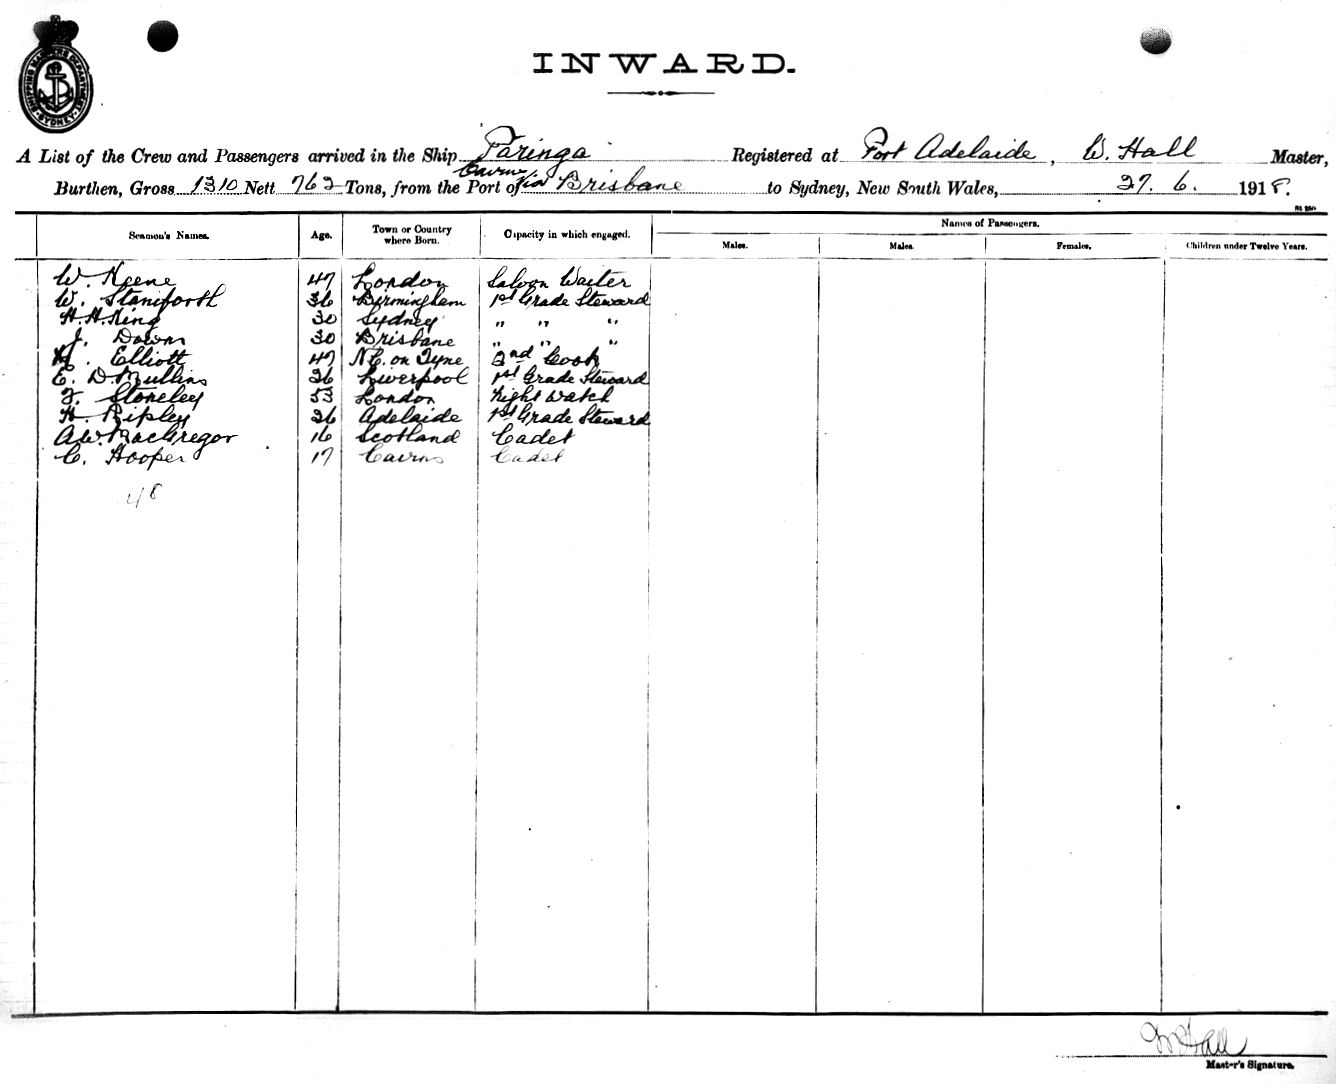 SHIPPING MASTER'S DEPARTMENT SYDNEY
INWARD.
A List of the Crew and Passengers arrived in the Ship Paringa Registered at Port Adelaide, W. Hall Master,
Cairns
Burthen, Gross 1310 Nett 762 Tons, from the Port of via Brisbane to Sydney, New South Wales, 27. 6. 1918.
Seamen's Names. Age. Town or Country where Born. Capacity in which engaged. Names of Passengers.
Males. Males. Females. Children under Twelve Years.
W. Keene 47 London Saloon Waiter
W. Staniforth 36 Birmingham 1st Grade Steward
H.H. King 30 Sydney " " "
J. Down 30 Brisbane " " "
Elliott 47 N.C. on Tyne 2nd Cook
E. D. Mullins 26 Liverpool 1st Grade Steward
F. Stoneley 53 London Night Watch
H. Ripley 26 Adelaide 1st Grade Steward
A.W. MacGregor 16 Scotland Cadet
C. Hooper 17 Cairns Cadet
48
W Hall
Master's Signature.